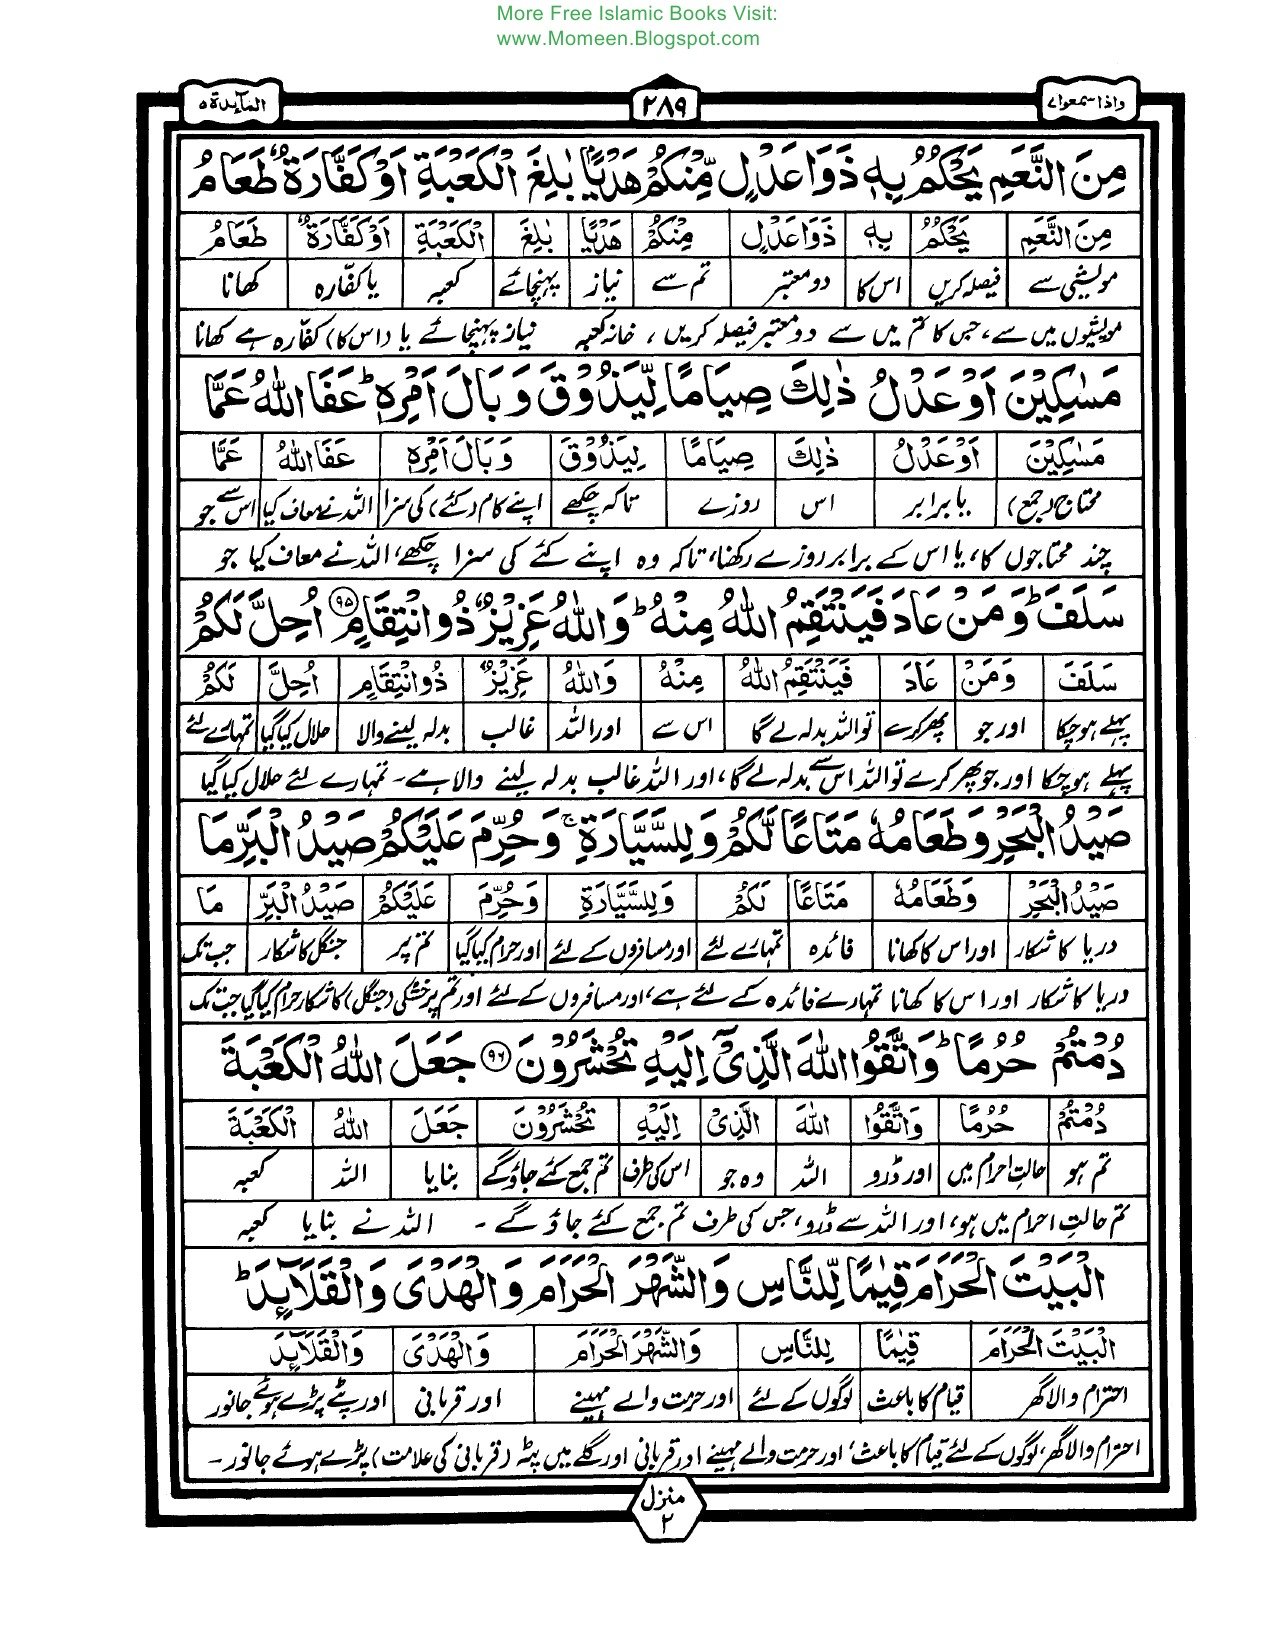 More Free Islamic Books Visit:
www.Momeen.Blogspot.com
واذا سمعوا ۷ ۲۸۹ المآئدة ۵
مِنَ النَّعَمِ يَحْكُمُ بِهٖ ذَوَا عَدْلٍ مِّنْكُمْ هَدْيًۢا بٰلِغَ الْكَعْبَةِ اَوْ كَفَّارَةٌ طَعَامُ
مِنَ النَّعَمِ يَحْكُمُ بِهٖ ذَوَا عَدْلٍ مِنْكُمْ هَدْيًۢا بٰلِغَ الْكَعْبَةِ اَوْ كَفَّارَةٌ طَعَامُ
مویشی سے فیصلہ کریں اس کا دو معتبر تم سے نیاز پہنچائے کعبہ یا کفّارہ کھانا
مویشیوں میں سے، جس کا تم میں سے دو معتبر فیصلہ کریں، خانہ کعبہ نیاز پہنچائے یا (اس کا) کفّارہ ہے کھانا
مَسٰكِيْنَ اَوْ عَدْلُ ذٰلِكَ صِيَامًا لِّيَذُوْقَ وَبَالَ اَمْرِهٖ ؕ عَفَا اللّٰهُ عَمَّا
مَسٰكِيْنَ اَوْ عَدْلُ ذٰلِكَ صِيَامًا لِيَذُوْقَ وَبَالَ اَمْرِهٖ عَفَا اللّٰهُ عَمَّا
محتاج (جمع) یا برابر اس روزے تاکہ چکھے اپنے کام (کئے) کی سزا اللہ نے معاف کیا اس سے جو
چند محتاجوں کا، یا اس کے برابر روزے رکھنا، تاکہ وہ اپنے کئے کی سزا چکھے، اللہ نے معاف کیا جو
سَلَفَ ؕ وَمَنْ عَادَ فَيَنْتَقِمُ اللّٰهُ مِنْهُ ؕ وَاللّٰهُ عَزِيْزٌ ذُوانْتِقَامٍ ۹۵ اُحِلَّ لَكُمْ
سَلَفَ وَمَنْ عَادَ فَيَنْتَقِمُ اللّٰهُ مِنْهُ وَاللّٰهُ عَزِيْزٌ ذُوانْتِقَامٍ اُحِلَّ لَكُمْ
پہلے ہو چکا اور جو پھر کرے تو اللہ بدلہ لے گا اس سے اور اللہ غالب بدلہ لینے والا حلال کیا گیا تمہارے لئے
پہلے ہو چکا اور جو پھر کرے تو اللہ اس سے بدلہ لے گا، اور اللہ غالب بدلہ لینے والا ہے۔ تمہارے لئے حلال کیا گیا
صَيْدُ الْبَحْرِ وَطَعَامُهٗ مَتَاعًا لَّكُمْ وَلِلسَّيَّارَةِ ۚ وَحُرِّمَ عَلَيْكُمْ صَيْدُ الْبَرِّ مَا
صَيْدُ الْبَحْرِ وَطَعَامُهٗ مَتَاعًا لَكُمْ وَلِلسَّيَّارَةِ وَحُرِّمَ عَلَيْكُمْ صَيْدُ الْبَرِّ مَا
دریا کا شکار اور اس کا کھانا فائدہ تمہارے لئے اور مسافروں کے لئے اور حرام کیا گیا تم پر جنگل کا شکار جب تک
دریا کا شکار اور اس کا کھانا تمہارے فائدہ کے لئے ہے، اور مسافروں کے لئے اور تم پر خشکی (جنگل) کا شکار حرام کیا گیا جب تک
دُمْتُمْ حُرُمًا ؕ وَاتَّقُوا اللّٰهَ الَّذِيْٓ اِلَيْهِ تُحْشَرُوْنَ ۹۶ جَعَلَ اللّٰهُ الْكَعْبَةَ
دُمْتُمْ حُرُمًا وَاتَّقُوا اللّٰهَ الَّذِيْ اِلَيْهِ تُحْشَرُوْنَ جَعَلَ اللّٰهُ الْكَعْبَةَ
تم ہو حالتِ احرام میں اور ڈرو اللہ وہ جو اس کی طرف تم جمع کئے جاؤ گے بنایا اللہ کعبہ
تم حالتِ احرام میں ہو، اور اللہ سے ڈرو، جس کی طرف تم جمع کئے جاؤ گے۔ اللہ نے بنایا کعبہ
الْبَيْتَ الْحَرَامَ قِيٰمًا لِّلنَّاسِ وَالشَّهْرَ الْحَرَامَ وَالْهَدْيَ وَالْقَلَآئِدَ ؕ
الْبَيْتَ الْحَرَامَ قِيٰمًا لِلنَّاسِ وَالشَّهْرَ الْحَرَامَ وَالْهَدْيَ وَالْقَلَآئِدَ
احترام والا گھر قیام کا باعث لوگوں کے لئے اور حرمت والے مہینے اور قربانی اور پٹے پڑے ہوئے جانور
احترام والا گھر، لوگوں کے لئے قیام کا باعث، اور حرمت والے مہینے اور قربانی اور گلے میں پٹہ (قربانی کی علامت) پڑے ہوئے جانور۔
منزل
۲